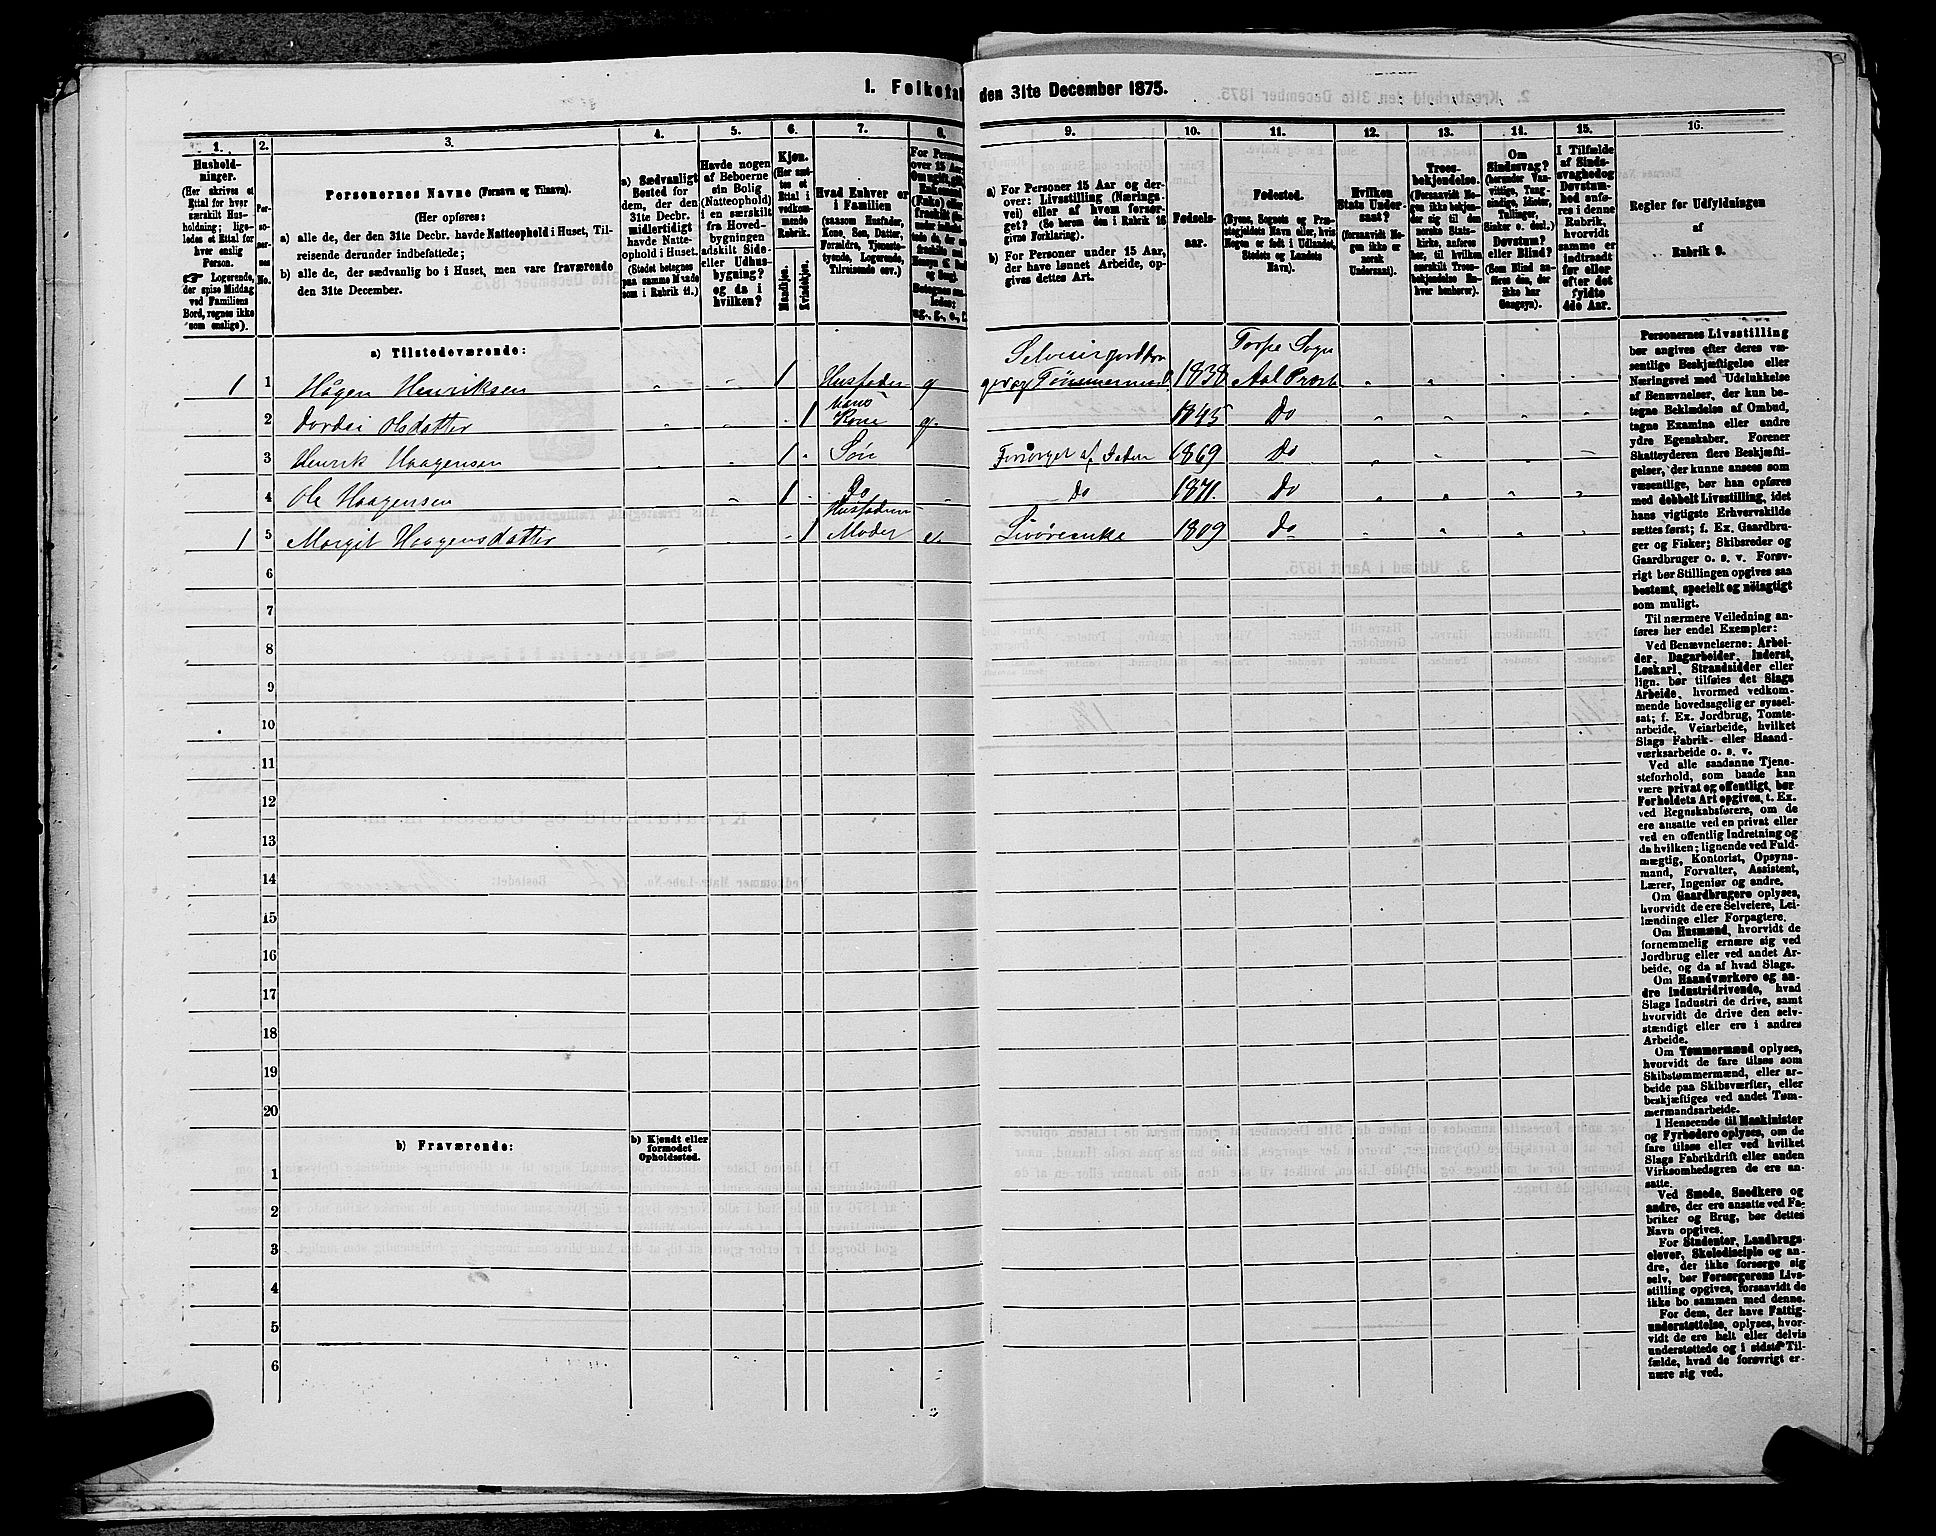 1. Folketal
den 31te December 1875.
1.
Hushold-
ninger.
(Her skrives et
Ettal for hver
særskilt Hus-
holdning; lige-
ledes et Ettal for
hver enslig
Person.
☞ Logerende,
der spise Middag
ved Familiens
Bord, regnes ikke
som enslige).
2.
Per-
so-
ner-
nes
No.
3.
Personernes Navne (Fornavn og Tilnavn).
(Her opføres:
a) alle de, der den 31te Decbr. havde Natteophold i Huset, Til-
reisende derunder indbefattede;
b) alle de, der sædvanlig bo i Huset, men vare fraværende
den 31te December.
4.
a) Sædvanligt
Bosted for
dem, der den
31te Decbr.
midlertidigt
havde Natte-
ophold i Huset.
(Stedet betegnes
paa samme Maade
som i Rubrik 11.)
5.
Havde nogen
af Beboerne
sin Bolig
(Natteophold)
i en særskilt
fra Hoved-
bygningen
adskilt Side-
eller Udhus-
bygning?
og da i
hvilken?
6.
Kjøn.
(Her sæt-
tes et
Ettal i
vedkom-
mende
Rubrik.
Mandkjøn.
Kvindekjøn.
7.
Hvad Enhver er
i Familien
(saasom Husfader,
Kone, Søn, Datter,
Forældre, Tjeneste-
tyende, Logerende,
Tilreisende osv.)
8.
9.
a) For Personer 15 Aar og der-
over: Livsstilling (Nærings-
vei) eller af hvem forsør-
get? (Se herom den i Rubrik 16
givne Forklaring).
b) For Personer under 15 Aar,
der have lønnet Arbeide, op-
gives dettes Art.
10.
Fødsels-
aar.
11.
Fødested.
(Byens, Sognets og Præ-
stegjeldets Navn eller, hvis
Nogen er født i Udlandet,
Stedets og Landets
Navn).
12.
Hvilken
Stats Under-
saat?
(forsaavidt No-
gen ikke er
norsk
Undersaat).
13.
Troes-
bekjendelse.
(Forsaavidt No-
gen ikke bekjen-
der sig til den
norske Stats-
kirke, anføres
her, til hvilken
særskilt Troes-
bekjendelse En-
hver henhører).
14.
Om
Sindssvag?
(herunder Van-
vittige, Tung-
sindige, Idioter,
Tullinger,
Sinker o. desl.).
Døvstum?
eller Blind?
(Som Blind an-
føres den, der
ikke har
Gangsyn).
15.
I Tilfælde
af Sinds-
svaghed og
Døvstum-
hed anfø-
res i denne
Rubrik,
hvorvidt
samme er
indtraadt
før eller
efter det
fyldte
4de Aar.
16.
Regler for Udfyldningen
af
Rubrik 9.
a) Tilstedeværende:
Selveier
Torpe Sogn
1 1 Hågen Henriksen 1 Husfader g Tømmermand 1838 Aal Præst
hans
2 Olsdatter 1 Kone g. 1845 Do
3 Henrik Haagensen 1 Søn Forsørget af Faderen 1869 Do
4 Ole Haagensen 1 Do Do 1871. Do
Husfaderens
1 5 Margit Haagensdatter 1 Moder e. 1809 Do
6
7
8
9
10
11
12
13
14
15
16
17
18
19
20
b) Fraværende:
b) Kjendt eller
formodet
Opholdssted.
1
2
3
4
5
6
Personernes Livsstilling
bør angives efter deres væ-
sentlige Beskjæftigelse eller
Næringsvei med Udelukkelse
af Benævnelser, der kun be-
tegne Beklædelse af Ombud,
tagne Examina eller andre
ydre Egenskaber. Forener
Skatteyderen flere Beskjæfti-
gelser, der kunne ansees som
væsentlige, bør han opføres
med dobbelt Livsstilling, idet
hans vigtigste Erhvervskilde
sættes først; f. Ex. Gaardbru-
ger og Fisker; Skibsreder og
Gaardbruger o. s. v. Forøv-
rigt bør Stillingen opgives saa
bestemt, specielt og nöiagtigt
som muligt.
Til nærmere Veiledning an-
føres her endel Exempler:
Ved Benævnelserne: Arbei-
der, Dagarbeider, Inderst,
Løskarl, Strandsidder eller
lign. bør tilføies det Slags
Arbeide, hvormed vedkom-
mende hovedsagelig er syssel-
sat; f. Ex. Jordbrug, Tomte-
arbeide, Veiarbeide, hvilket
Slags Fabrik- eller Haand-
værksarbeide o. s. v.
Ved alle saadanne Tjene-
steforhold, som baade kan
være privat og offentligt, bør
Forholdets Art opgives, t. Ex.
ved Regnskabsførere, om de
ere ansatte ved en privat eller
ved en offentlig Indretning og
da hvilken; lignende ved Fuld-
mægtig, Kontorist, Opsyns-
mand, Forvalter, Assistent,
Lærer, Ingeniør og andre.
Om Gaardbrugere oplyses,
hvorvidt de ere Selveiere, Lei-
lændinge eller Forpagtere.
Om Husmænd, hvorvidt de
fornemmelig ernære sig ved
Jordbrug eller ved andet Ar-
beide, og da af hvad Slags.
Om Haandværkere og an-
dre Industridrivende, hvad
Slags Industri de drive, samt
hvorvidt de drive den selv-
stændigt eller ere i andres
Arbeide.
Om Tømmermænd oplyses,
hvorvidt de fare tilsøs som
Skibstømmermænd, eller ar-
beide paa Skibsværfter, eller
beskjæftiges ved andet Tøm-
mermandsarbeide.
I Henseende til Maskinister
og Fyrbødere oplyses, om de
fare tilsøs eller ved hvilket
Slags Fabrikdrift eller anden
Virksomhedsgren de ere an-
satte.
Ved Smede, Snedkere og
andre, der ere ansatte ved Fa-
briker og Brug, bør dettes
Navn opgives.
For Studenter, Landbrugs-
elever, Skoledisciple og an-
dre, der ikke forsørge sig
selv, bør Forsørgerens Livs-
stilling opgives, forsaavidt de
ikke bo sammen med denne.
For dem, der have Fattig-
understøttelse, oplyses, hvor-
vidt de ere helt eller delvis
understøttede og i sidste Til-
fælde, hvad de forøvrigt er-
nære sig ved.